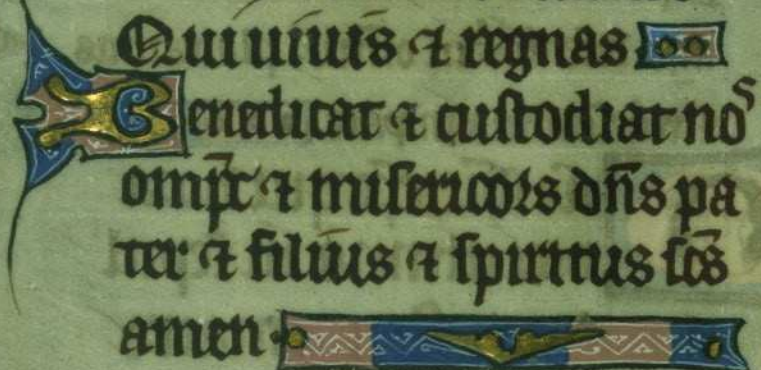 Qui uiuis ⁊ regnas
Benedicat ⁊ custodiat nos
omp̄c ⁊ misericors dn̄s pa
ter ⁊ filius ⁊ spiritus sc̄s
amen·